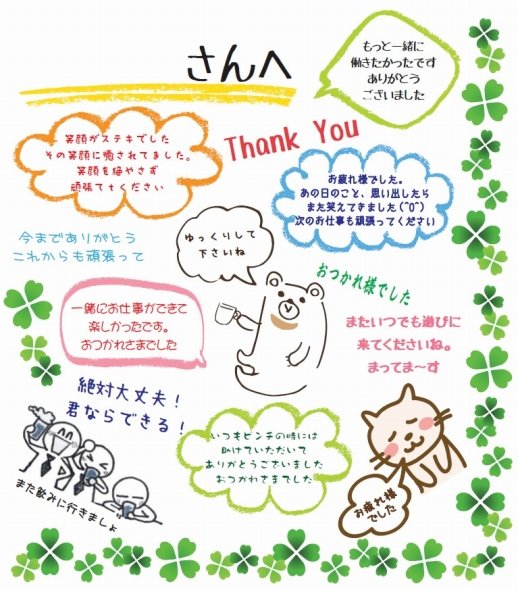 さんへ
もっと一緒に
働きたかったです
ありがとう
ございました
笑顔がステキでした
その笑顔に癒されてました。
笑顔を絶やさず
頑張てください
Thank You
お疲れ様でした。
あの日のこと、思い出したら
また笑えてきました(^0^)
次のお仕事も頑張ってください
今までありがとう
これからも頑張って
ゆっくりして
下さいね
おつかれ様でした
一緒にお仕事ができて
楽しかったです。
おつかれさまでした
またいつでも遊びに
来てくださいね。
まってま〜す
絶対大丈夫！
君ならできる！
いつもピンチの時には
助けていただいて
ありがとうございました
おつかれさまでした
また飲みに行きましょ
お疲れ様
でした